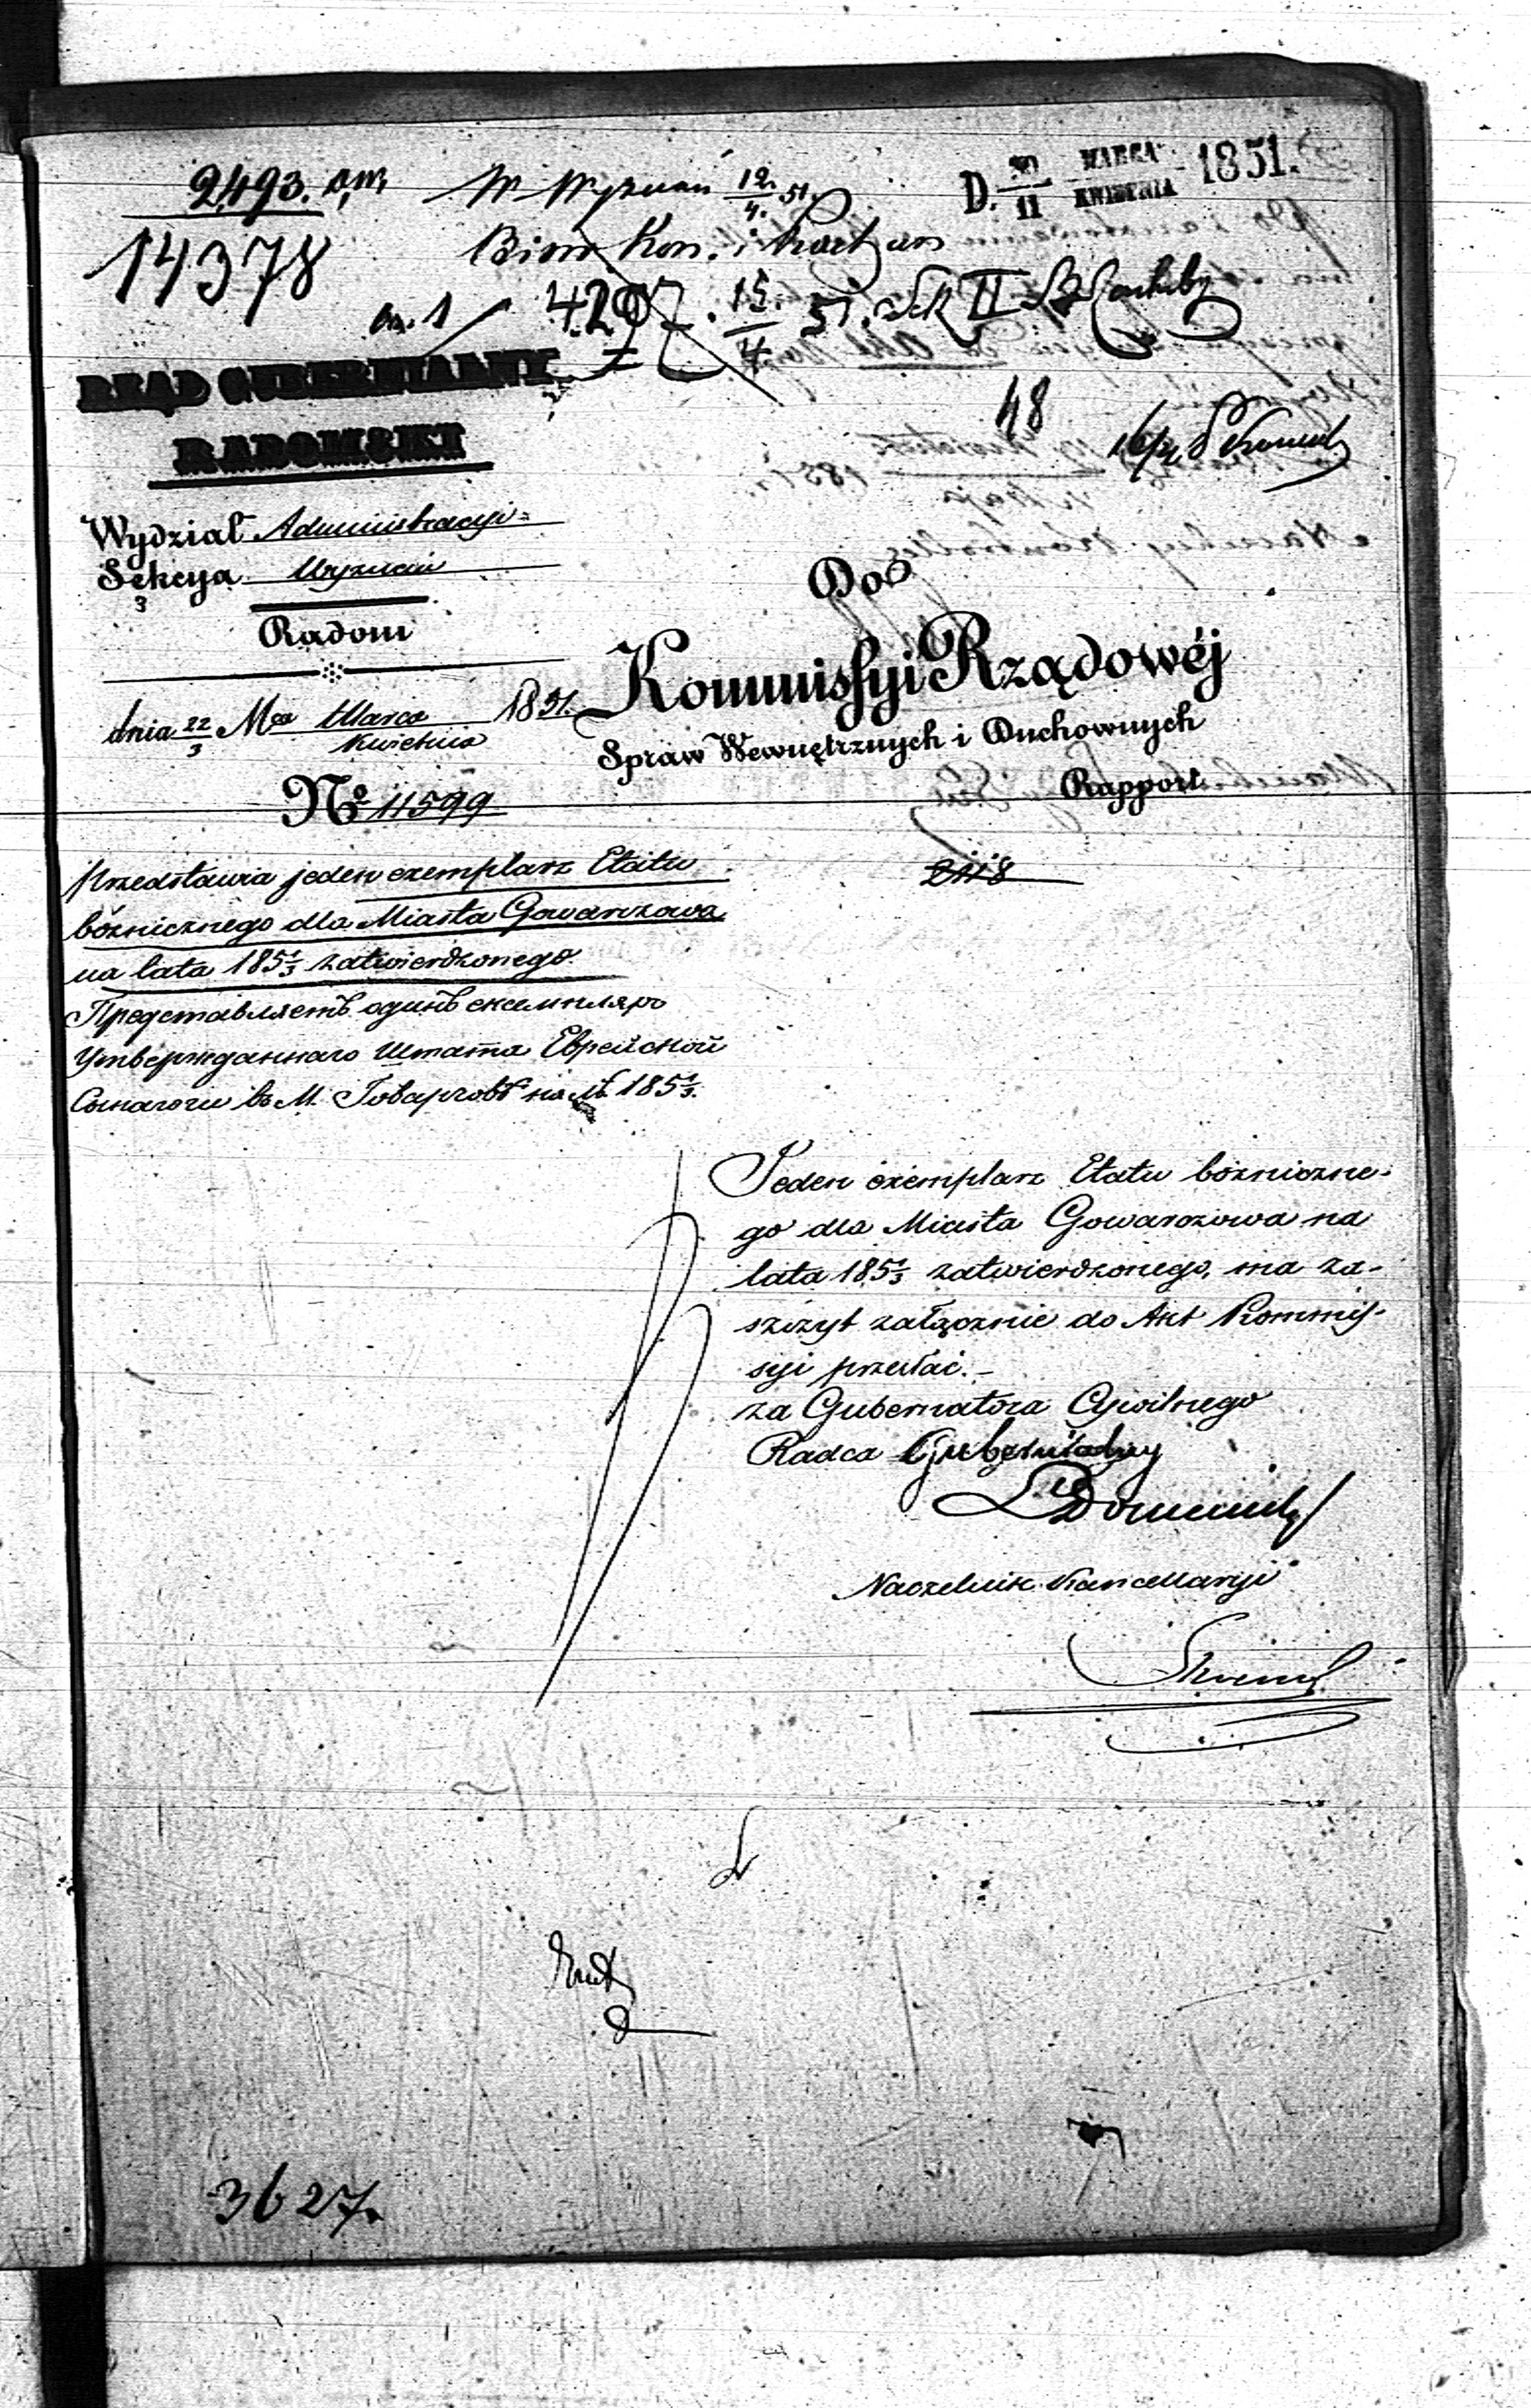 2493. a,m, W Wyznań 12/4. 51.
D. 30/11 MARCA/KWIETNIA 1851.
14378
Biuro Kon. i
an. 1 4297. 15/4 51. Sek II
RZĄD GUBERNIALNY
RADOMSKI
48
Wydział Administracyi
Sekcya Wyznań
3
Radom
dnia 22/3 Mca Marca/Kwietnia 1851.
Nº 11599
Do
Kommissyi Rządowéj
Spraw Wewnętrznych i Duchownych
Rapport
2118
Przedstawia jeden exemplarz Etatu
bóżnicznego dla Miasta Gowarczowa
na lata 185 1/3 zatwierdzonego.
Представляетъ одинъ екземпляръ
Утвержданнаго Штата Еврейской
Сынагоги въ М. Говарчовѣ на 185 1/3.
Jeden exemplarz Etatu bóżniczne-
go dla Miasta Gowarczowa na
lata 185 1/3 zatwierdzonego, ma za-
szczyt załącznie do Akt Kommis-
syi przesłać.-
za Gubernatora Cywilnego
Radca Gubernialny
Naczelnik Kancellaryi
3627.